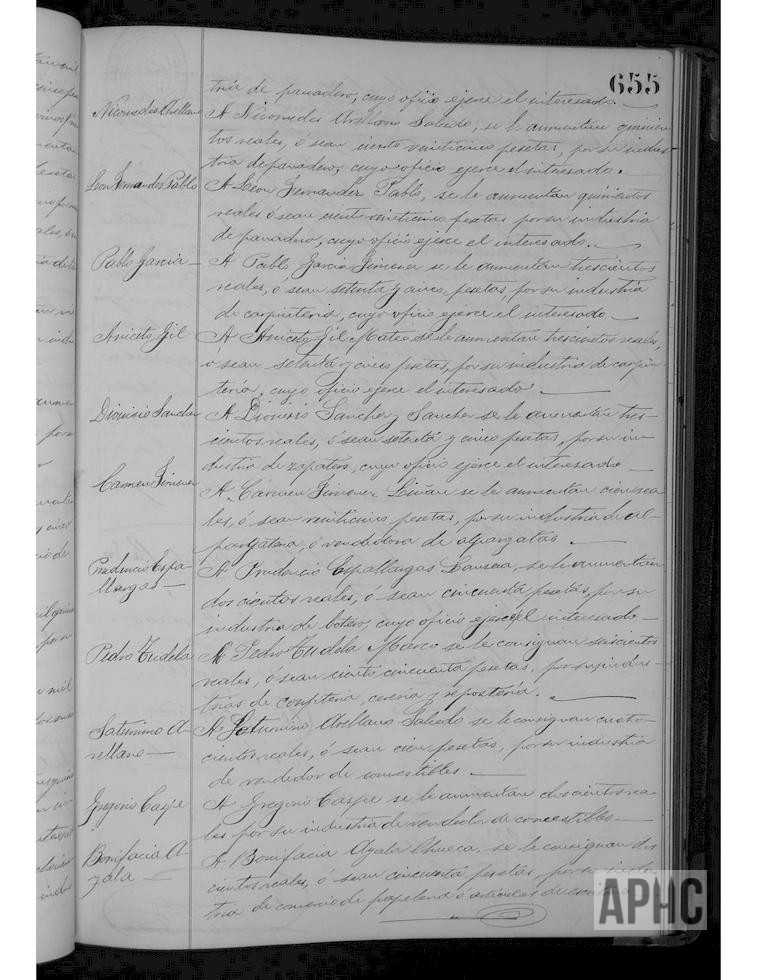 655
tria de panadero, cuyo oficio ejerce el interesado.
Nicomedes Arellano
A Nicomedes Arellano Salcedo, se le aumentan quinien-
tos reales, ó sean ciento veinticinco pesetas, por su indus-
tria de panadero, cuyo oficio ejerce el interesado.
Leon Fernandez Pablo
A Leon Fernandez Pablo, se le aumentan quinientos
reales ó sean ciento veinticinco pesetas por su industria
de panadero, cuyo oficio ejerce el interesado.
Pablo Garcia
A Pablo Garcia Jimenez se le aumentan trescientos
reales, ó sean setenta y cinco pesetas, por su industria
de carpinteria, cuyo oficio ejerce el interesado
Aniceto Gil
A Aniceto Gil Mateo se le aumentan trescientos reales,
ó sean setenta y cinco pesetas, por su industria de carpin-
teria, cuyo oficio ejerce el interesado.
Dionisio Sanchez
A Dionisio Sanchez y Sanchez se le aumentan tres-
cientos reales, ó sean setenta y cinco pesetas, por su in-
dustria de zapatero, cuyo oficio ejerce el interesado
Carmen Jimenez
A Cármen Jimenez Liñan se le aumentan cien rea-
les, ó sean veinticinco pesetas, por su industria de al-
pargateria, ó vendedora de alpargatas.
Prudencio Espa-
llargas
A Prudencio Espallargas se le aumentan
doscientos reales, ó sean cincuenta pesetas, por su
industria de botero, cuyo oficio ejerce el interesado
Pedro Tudela
A Pedro Tudela Marco se le consignan seiscientos
reales, ó sean ciento cincuenta pesetas, por su indus-
trias de confiteria, cereria y reposteria.
Saturnino A-
rellano
A Saturnino Arellano Salcedo se le consignan cuatro-
cientos reales, ó sean cien pesetas, por su industria
de vendedor de comestibles.
Gregorio Caspe
A Gregorio Caspe se le aumentan doscientos rea-
les por su industria de vendedor de comestibles
Bonifacia A-
zala
A Bonifacia Azala Chueca, se le consignan dos
cientos reales, ó sean cincuenta pesetas, por su indus-
tria de comercio de papeleria ó articulos de
APHC